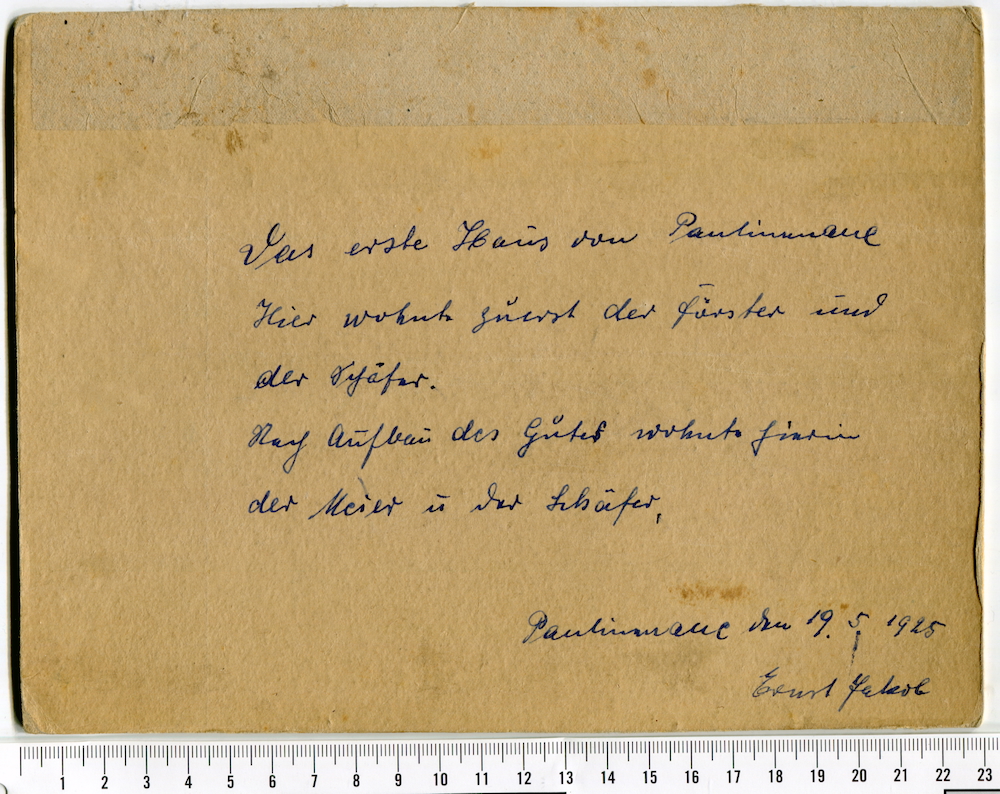 Das erste Haus von Paulinenaue
Hier wohnte zuerst der Förster und
der Schäfer.
Nach Aufbau des Gutes wohnte hierin
der Meier u der Schäfer,
Paulinenaue den 19. 5. 1925
Ernst Jakob
1 2 3 4 5 6 7 8 9 10 11 12 13 14 15 16 17 18 19 20 21 22 23